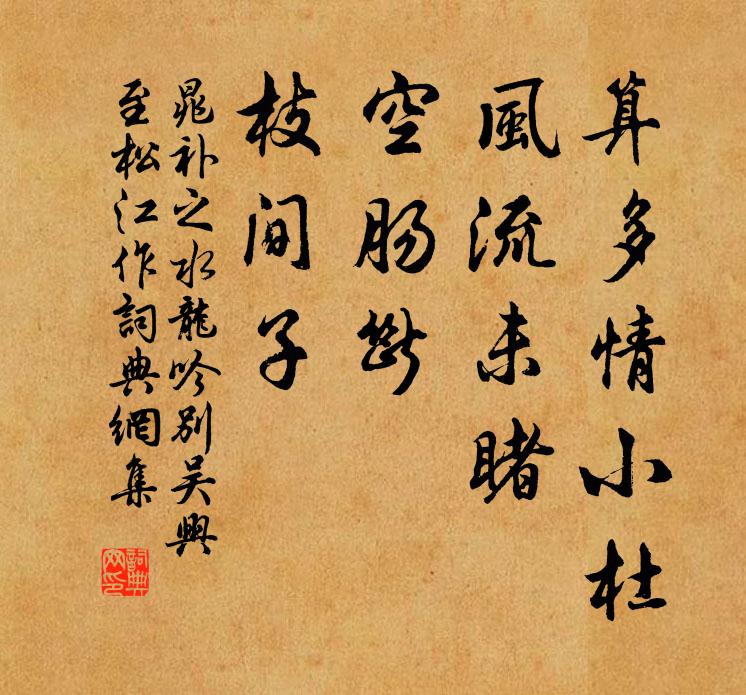 算多情小杜
風流未睹
空肠斷
枝间子
晁补之水龍吟别吴興
至松江作詞典網集
詞典
网印